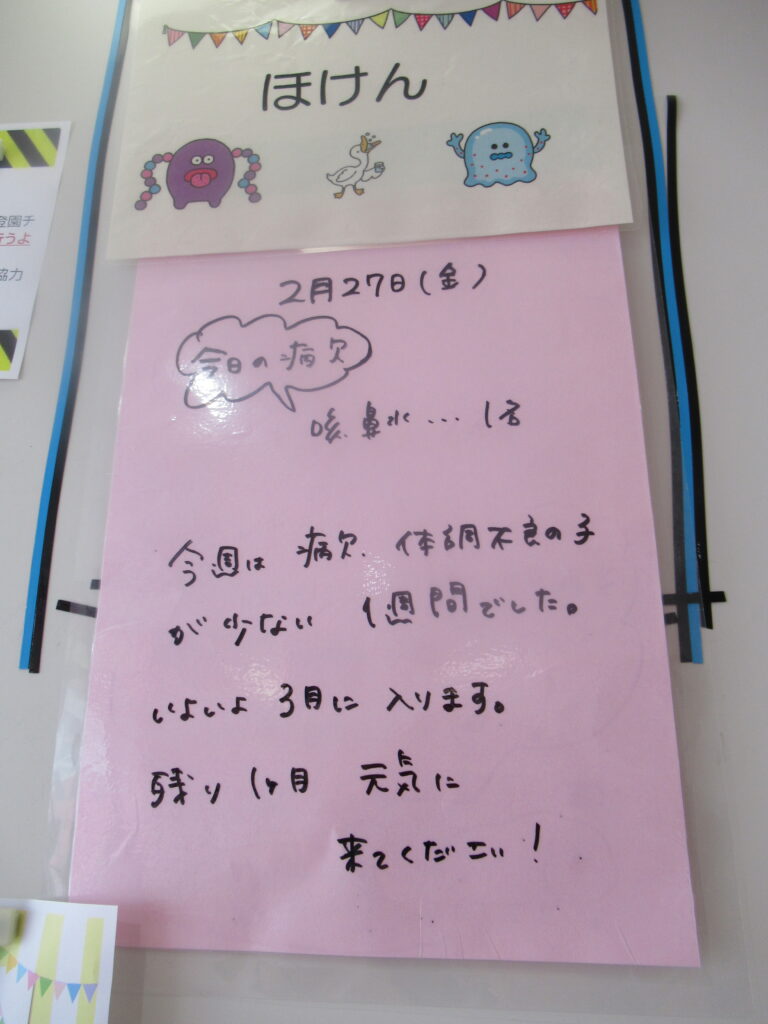 ほけん
2月27日(金)
今日の病欠
咳.鼻水... 1名
今週は 病欠. 体調不良の子
が少ない 1週間でした。
いよいよ 3月に 入ります。
残り 1ヶ月 元気に
来てください!
登園チ
行うよ
協力